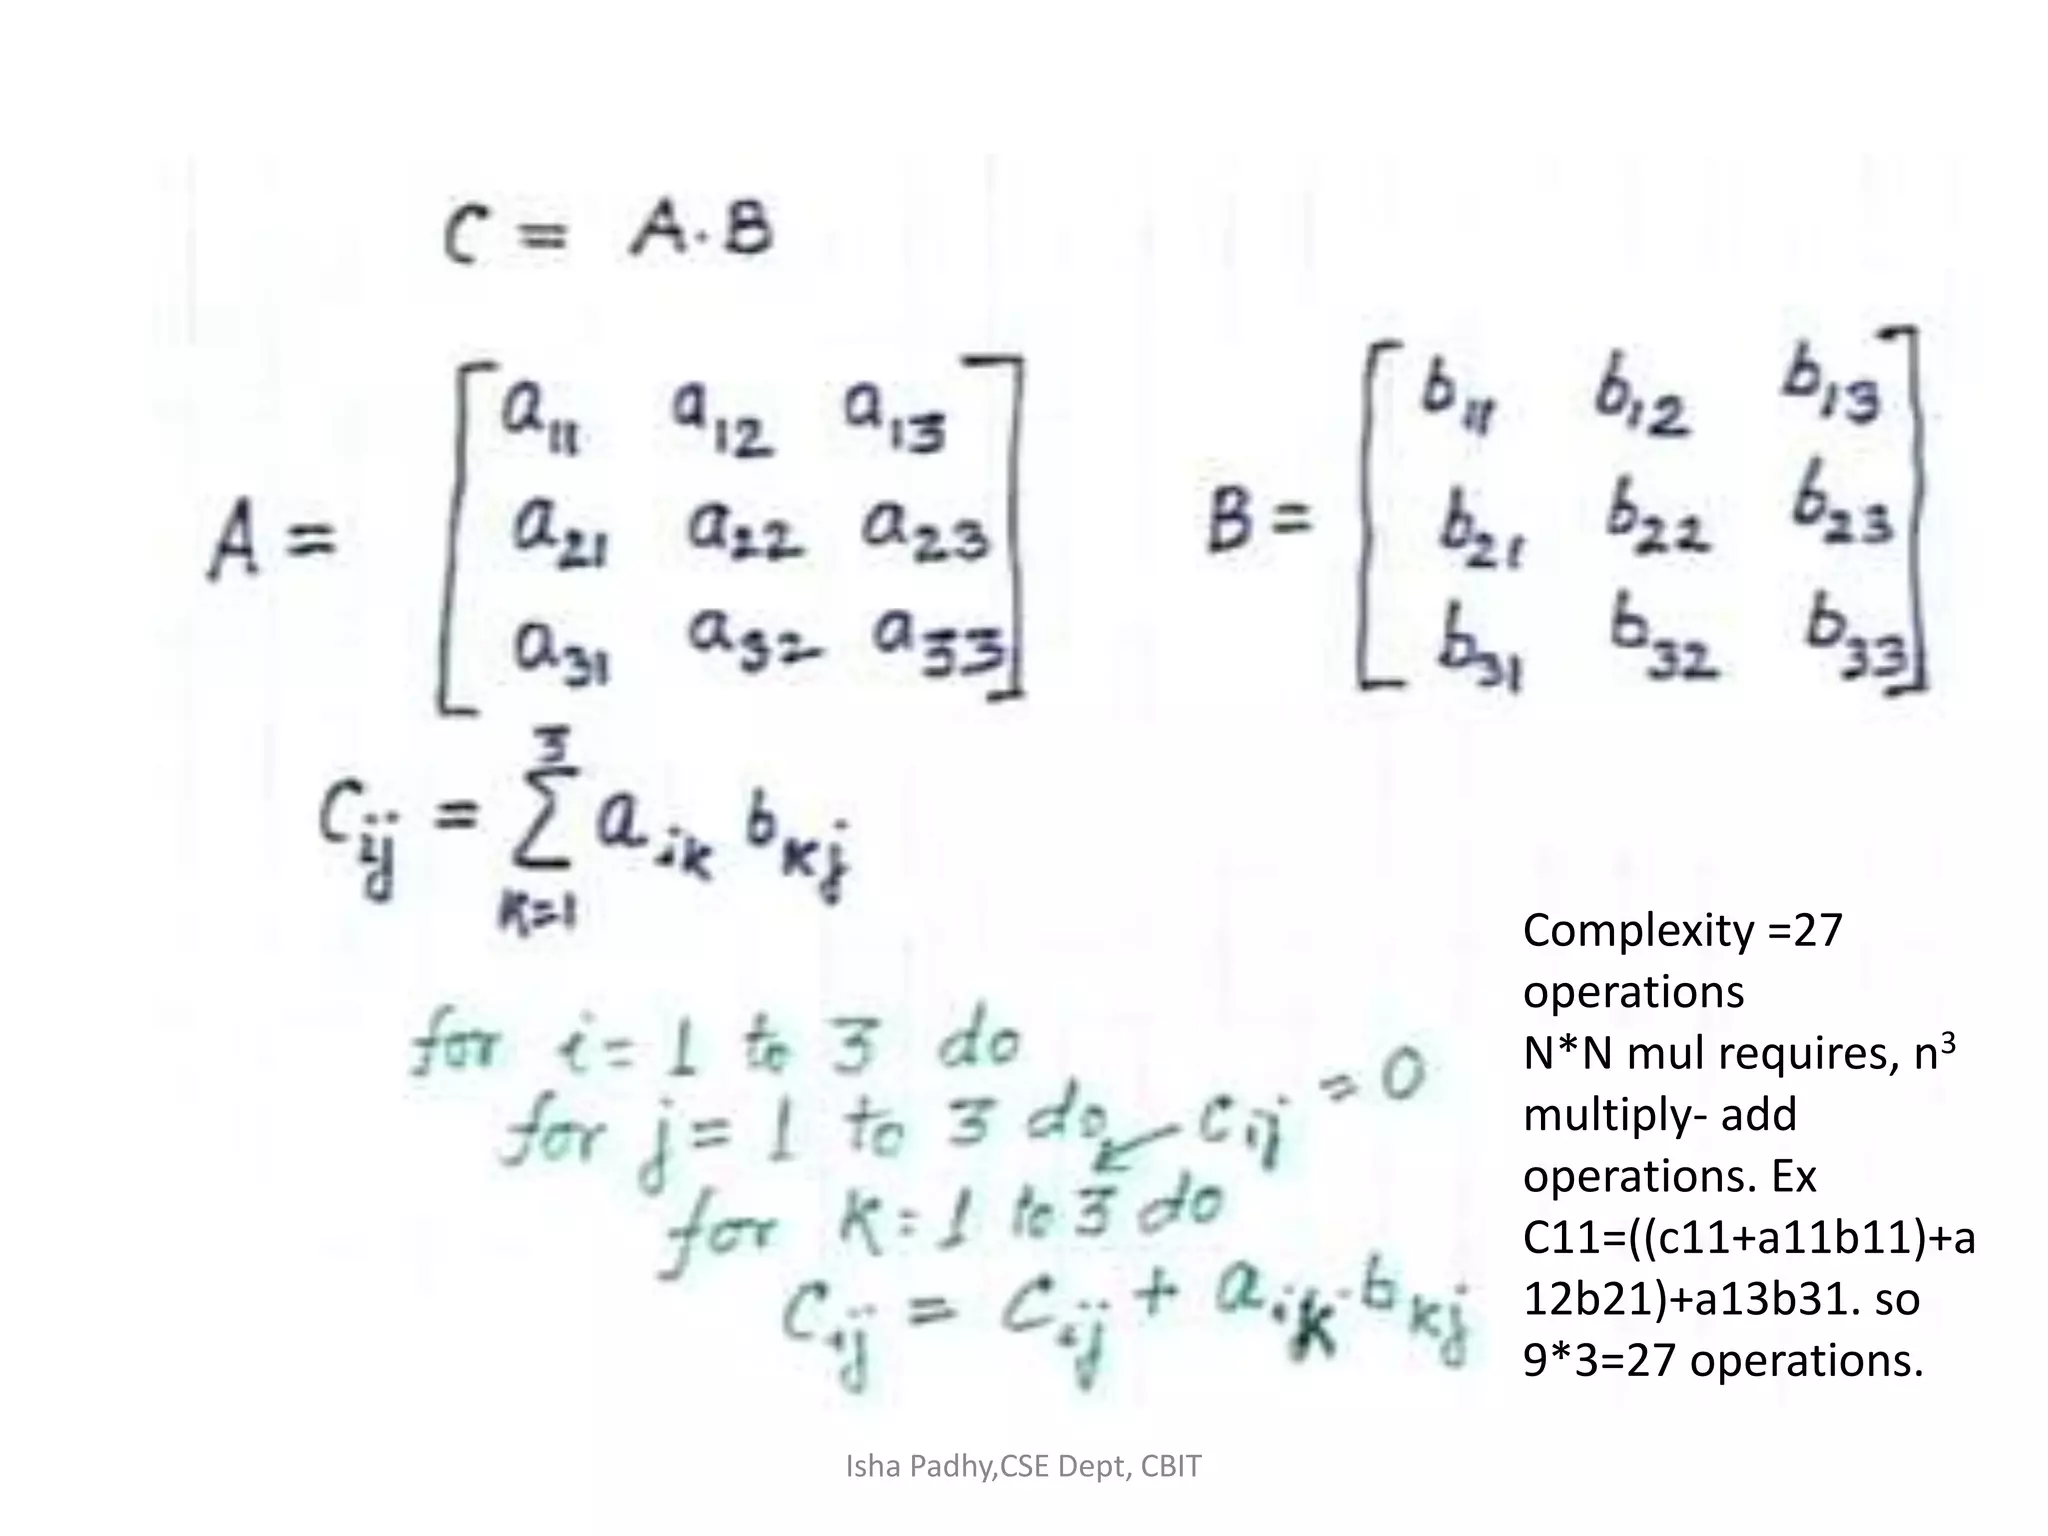 C = A.B
A = [ a11 a12 a13
a21 a22 a23
a31 a32 a33 ]
B = [ b11 b12 b13
b21 b22 b23
b31 b32 b33 ]
Cij = 3∑k=1 aik bkj
for i = 1 to 3 do
for j = 1 to 3 do ← cij = 0
for k = 1 to 3 do
Cij = Cij + aik . bkj
Complexity =27
operations
N*N mul requires, n³
multiply- add
operations. Ex
C11=((c11+a11b11)+a
12b21)+a13b31. so
9*3=27 operations.
Isha Padhy,CSE Dept, CBIT